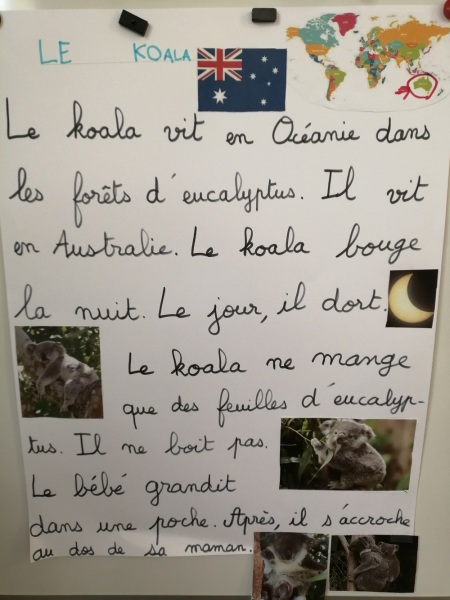 LE KOALA
Le koala vit en Océanie dans
les forêts d'eucalyptus. Il vit
en Australie. Le koala bouge
la nuit. Le jour, il dort.
Le koala ne mange
que des feuilles d'eucalyp-
tus. Il ne boit pas.
Le bébé grandit
dans une poche. Après, il s'accroche
au dos de sa maman.